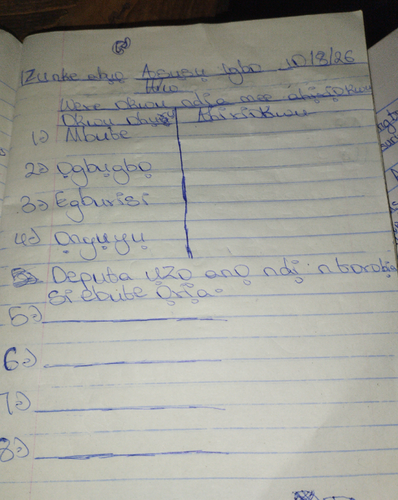 Zụnke abụọ Asụsụ Igbo 10/3/26
Were okwu ndịa mee ahịrịokwu
Okwu Ahịrịokwu
1) Mbute
2) Ọgbụgbọ
3) Egburisi
4) Ọnyụyụ
Deputa ụzọ anọ ndị ntorobịa
si ebute ọrịa.
5)
6)
7)
8)